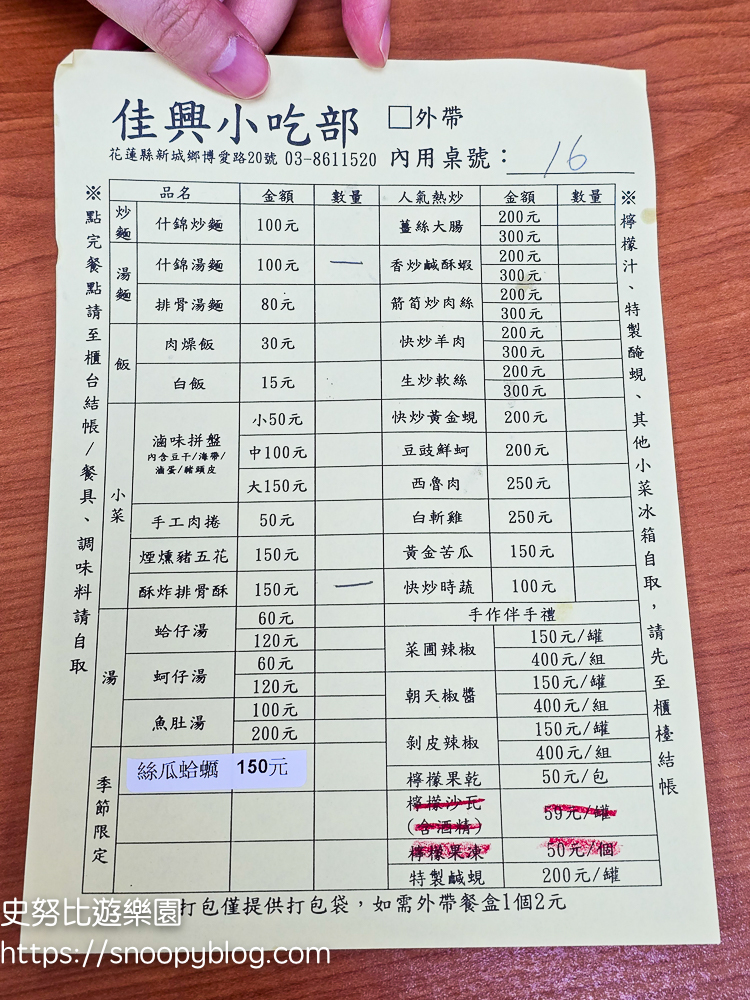 佳興小吃部 □外帶
花蓮縣新城鄉博愛路20號 03-8611520 內用桌號：16
※點完餐點請至櫃台結帳/餐具、調味料請自取
品名 金額 數量
炒麵 什錦炒麵 100元
湯麵 什錦湯麵 100元 一
排骨湯麵 80元
飯 肉燥飯 30元
白飯 15元
小菜 滷味拼盤 小50元
內含豆干/海帶/ 中100元
滷蛋/豬頭皮 大150元
手工肉捲 50元
煙燻豬五花 150元
酥炸排骨酥 150元 一
湯 蛤仔湯 60元
120元
蚵仔湯 60元
120元
魚肚湯 100元
200元
季節限定 絲瓜蛤蠣 150元
人氣熱炒 金額 數量
薑絲大腸 200元
300元
香炒鹹酥蝦 200元
300元
箭筍炒肉絲 200元
300元
快炒羊肉 200元
300元
生炒軟絲 200元
300元
快炒黃金蜆 200元
豆豉鮮蚵 200元
西魯肉 250元
白斬雞 250元
黃金苦瓜 150元
快炒時蔬 100元
手作伴手禮
菜圃辣椒 150元/罐
400元/組
朝天椒醬 150元/罐
400元/組
剝皮辣椒 150元/罐
400元/組
檸檬果乾 50元/包
檸檬沙瓦 59元/罐
(含酒精)
檸檬果凍 50元/個
特製鹹蜆 200元/罐
※檸檬汁、特製醃蜆、其他小菜冰箱自取，請先至櫃檯結帳
打包僅提供打包袋，如需外帶餐盒1個2元
史努比遊樂園
https://snoopyblog.com